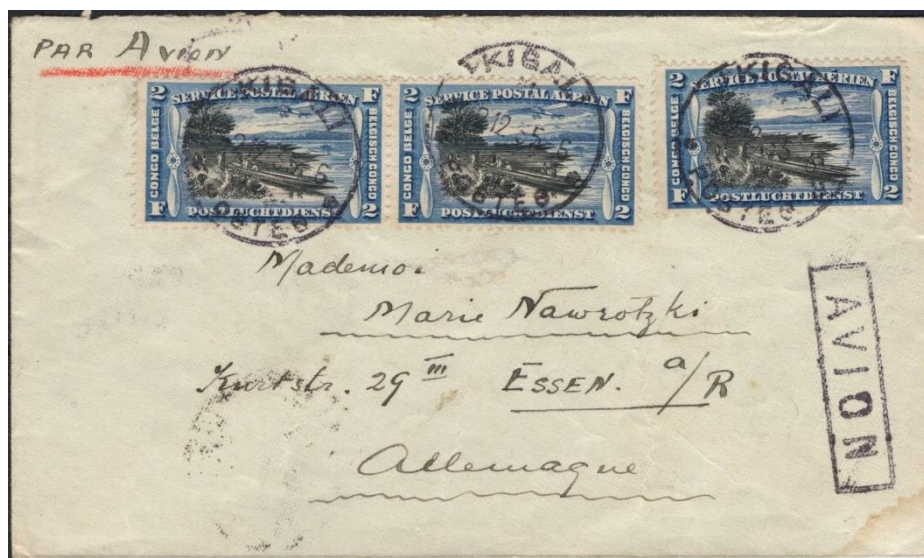 PAR AVION
2 SERVICE POSTAL AÉRIEN F
CONGO BELGE
BELGISCH CONGO
F POSTLUCHTDIENST 2
2 SERVICE POSTAL AÉRIEN F
CONGO BELGE
BELGISCH CONGO
F POSTLUCHTDIENST 2
2 SERVICE POSTAL AÉRIEN F
CONGO BELGE
BELGISCH CONGO
F POSTLUCHTDIENST 2
KIGALI
KIGALI
KIGALI
Mademoi.
Marie Nawrotzki
Kurtstr. 29 III ESSEN. a/R
Allemagne
AVION